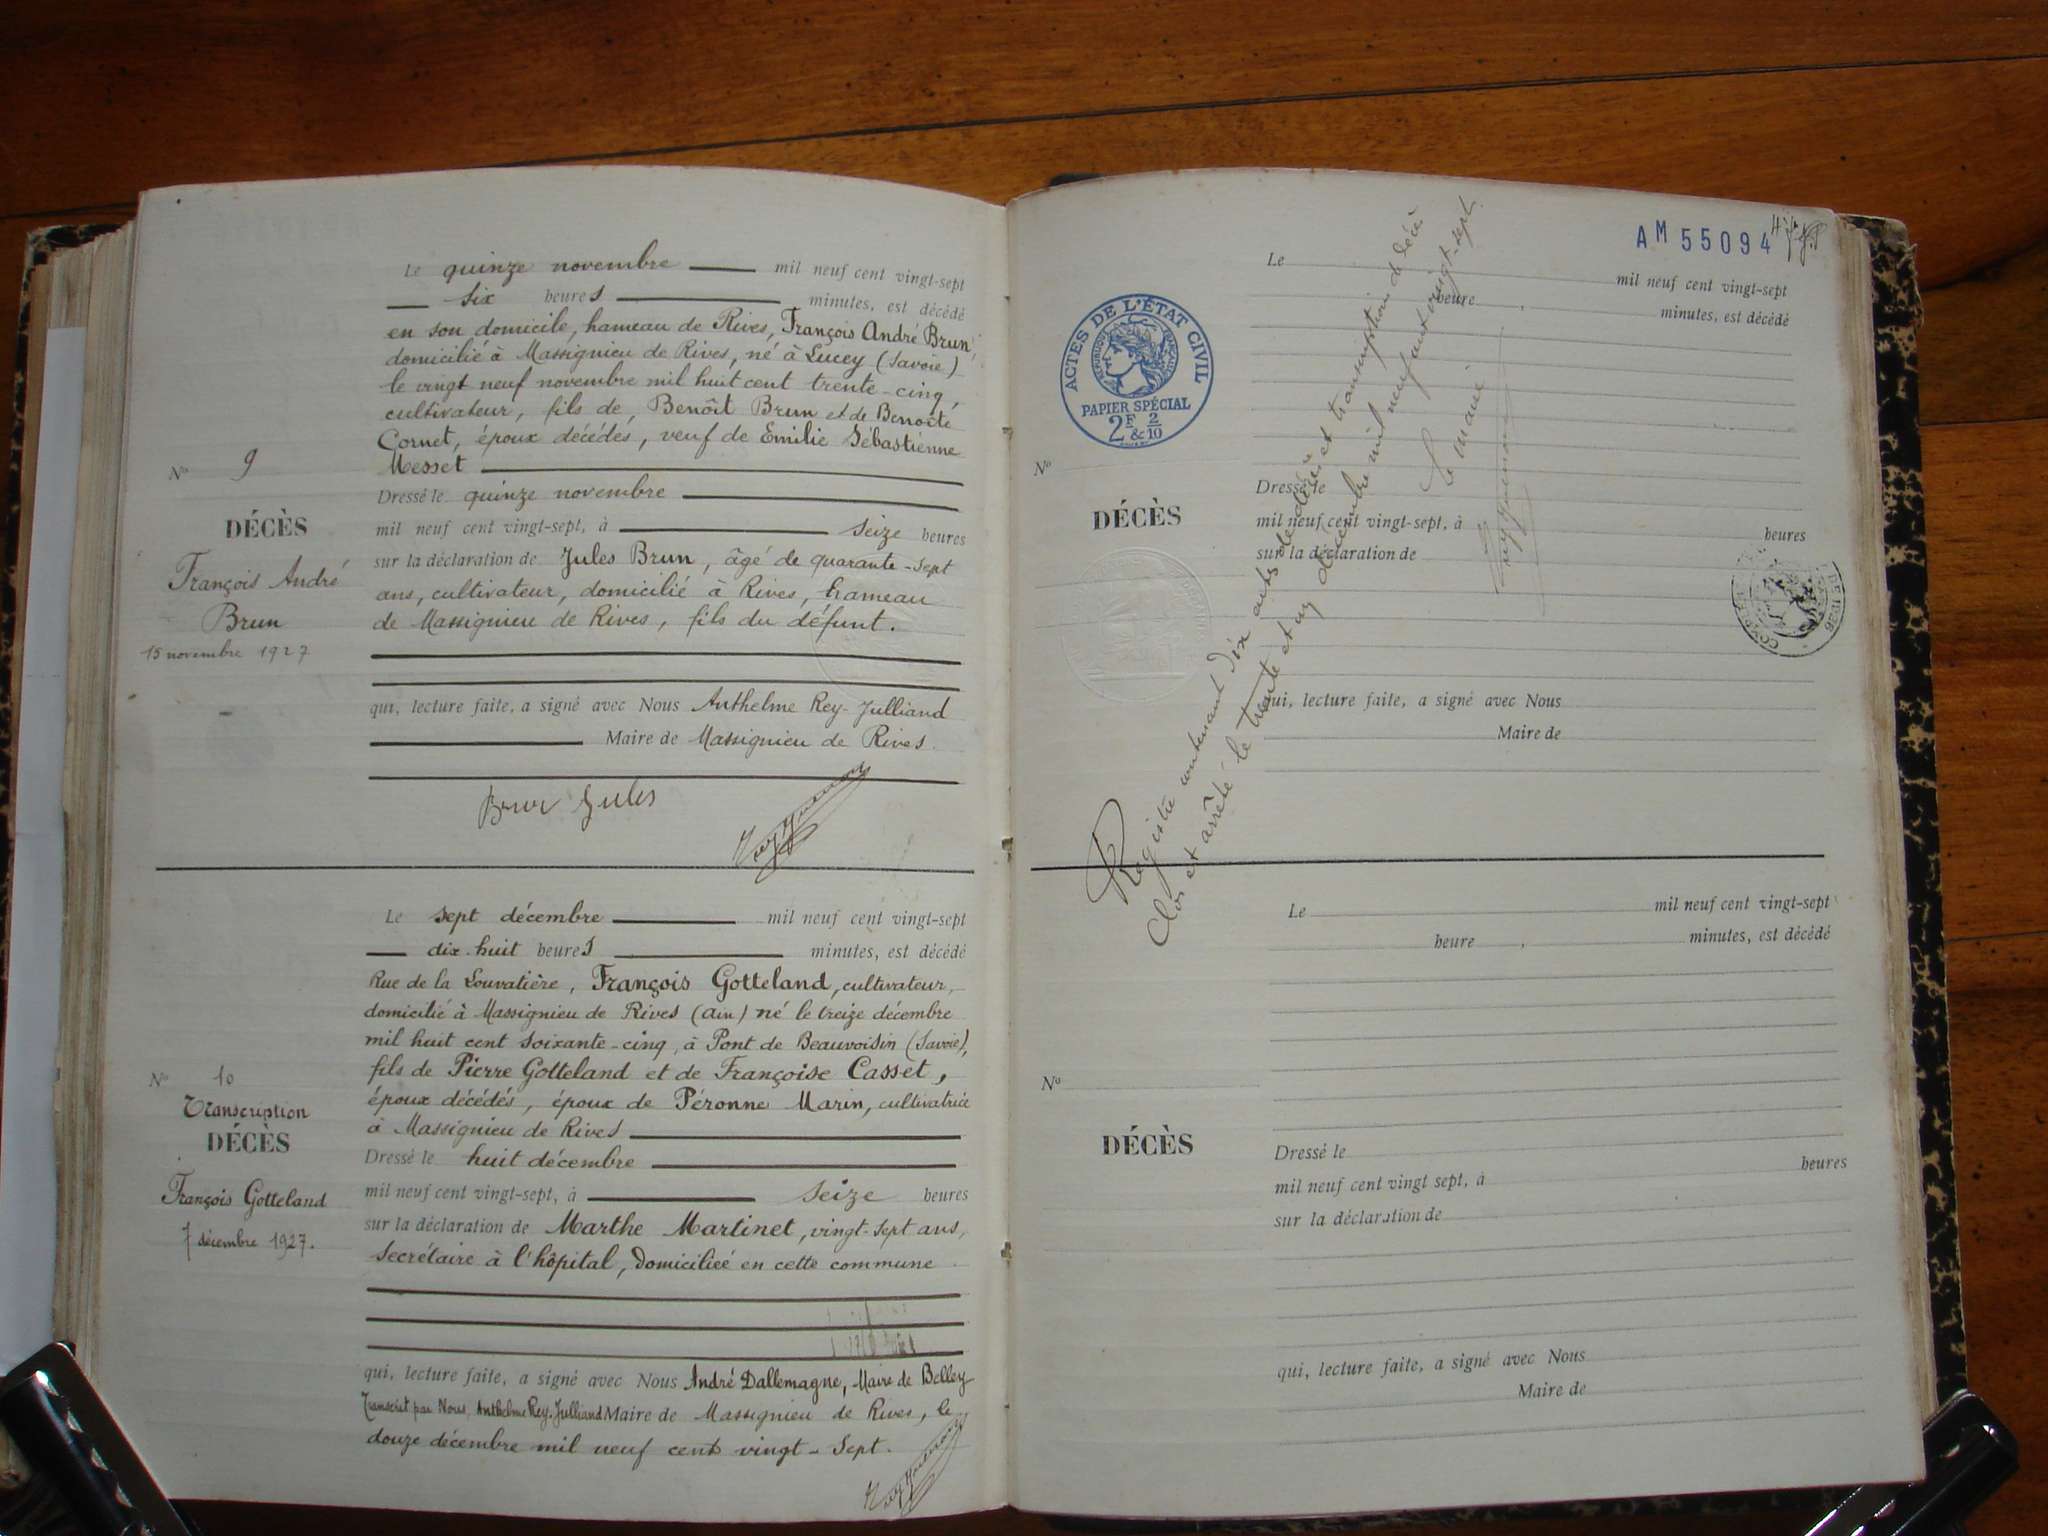 Le quinze novembre mil neuf cent vingt-sept
six heures minutes, est décédé
en son domicile, hameau de Rives, François André Brun,
domicilié à Massignieu de Rives, né à Lucey (Savoie)
le vingt neuf novembre mil huit cent trente-cinq,
cultivateur, fils de, Benoît Brun et de Benoîte
Cornet, époux décédés, veuf de Emilie Sébastienne
Messet
N° 9
DÉCÈS
François André
Brun
15 novembre 1927
Dressé le quinze novembre
mil neuf cent vingt-sept, à seize heures
sur la déclaration de Jules Brun, âgé de quarante-sept
ans, cultivateur, domicilié à Rives, hameau
de Massignieu de Rives, fils du défunt.
qui, lecture faite, a signé avec Nous Anthelme Rey-Julliand
Maire de Massignieu de Rives.
Brun Jules
Le sept décembre mil neuf cent vingt-sept
dix-huit heures minutes, est décédé
Rue de la Louvatière, François Gotteland, cultivateur,
domicilié à Massignieu de Rives (Ain) né le treize décembre
mil huit cent soixante-cinq, à Pont de Beauvoisin (Savoie),
fils de Pierre Gotteland et de Françoise Casset,
époux décédés, époux de Péronne Marin, cultivatrice
à Massignieu de Rives
N° 10
Transcription
DÉCÈS
François Gotteland
7 décembre 1927.
Dressé le huit décembre
mil neuf cent vingt-sept, à seize heures
sur la déclaration de Marthe Martinet, vingt-sept ans,
secrétaire à l'hôpital, domiciliée en cette commune
qui, lecture faite, a signé avec Nous André Dallemagne, Maire de Belley
Transcrit par Nous, Anthelme Rey-Julliand Maire de Massignieu de Rives, le
douze décembre mil neuf cent vingt-sept.
AM 55094
ACTES DE L'ÉTAT CIVIL
RÉPUBLIQUE FRANÇAISE
PAPIER SPÉCIAL
2F & 2/10
Le mil neuf cent vingt-sept
heure minutes, est décédé
N°
DÉCÈS
Dressé le
mil neuf cent vingt-sept, à heures
sur la déclaration de
qui, lecture faite, a signé avec Nous
Maire de
Registre contenant dix actes de décès et transcription de décès
Clos et arrêté le trente et un décembre mil neuf cent vingt-sept.
Le maire
Le mil neuf cent vingt-sept
heure minutes, est décédé
N°
DÉCÈS
Dressé le
mil neuf cent vingt sept, à heures
sur la déclaration de
qui, lecture faite, a signé avec Nous
Maire de